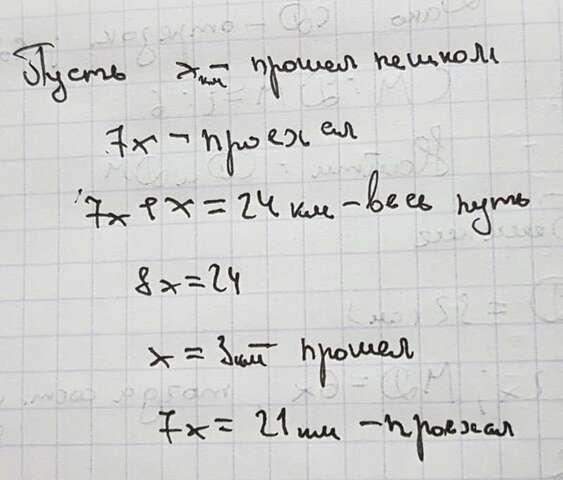 Пусть x км – прошел пешком
7x – проехал
7x + x = 24 км – весь путь
8x = 24
x = 3 км – прошел
7x = 21 км – проехал